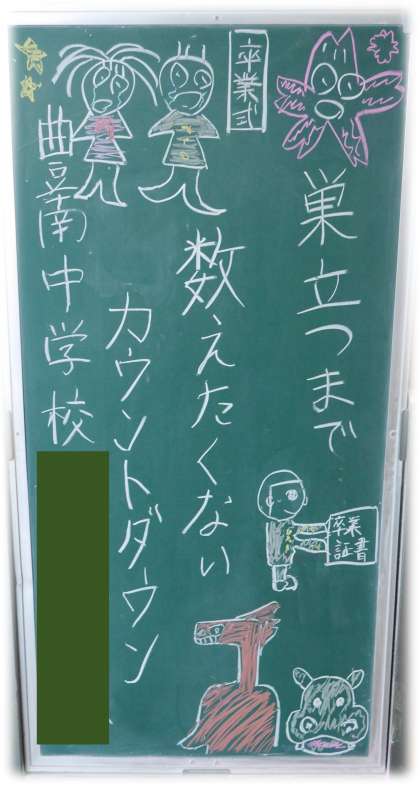 卒業式
巣立つまで
数えたくない
カウントダウン
豊南中学校
卒業
証書